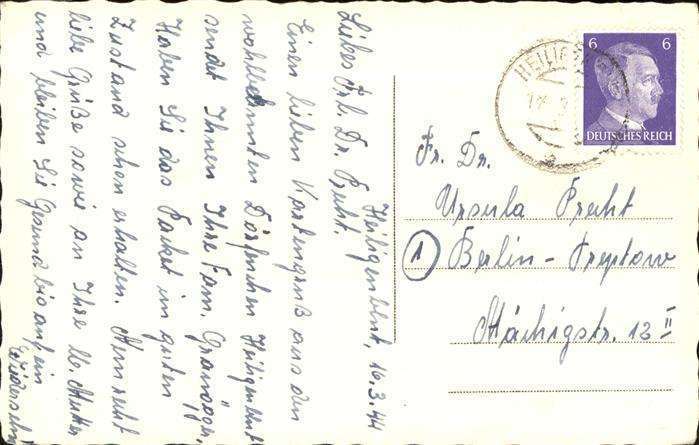 Heiligenblut, 16.3.44
Liebes Frl. Dr. Precht.
Einen lieben Kartengruß aus den
wohlbekannten Dörfchen Heiligenblut
sendet Ihnen Ihre Fam.
Haben Sie das Packet in guten
Zustand schon erhalten.
liebe Grüße sowie an Ihre lb. Mutter
und bleiben Sie Gesund bis auf ein
Wiedersehn
6 6
DEUTSCHES REICH
Fr. Dr.
Ursula Precht
1 Berlin-Treptow
12 II